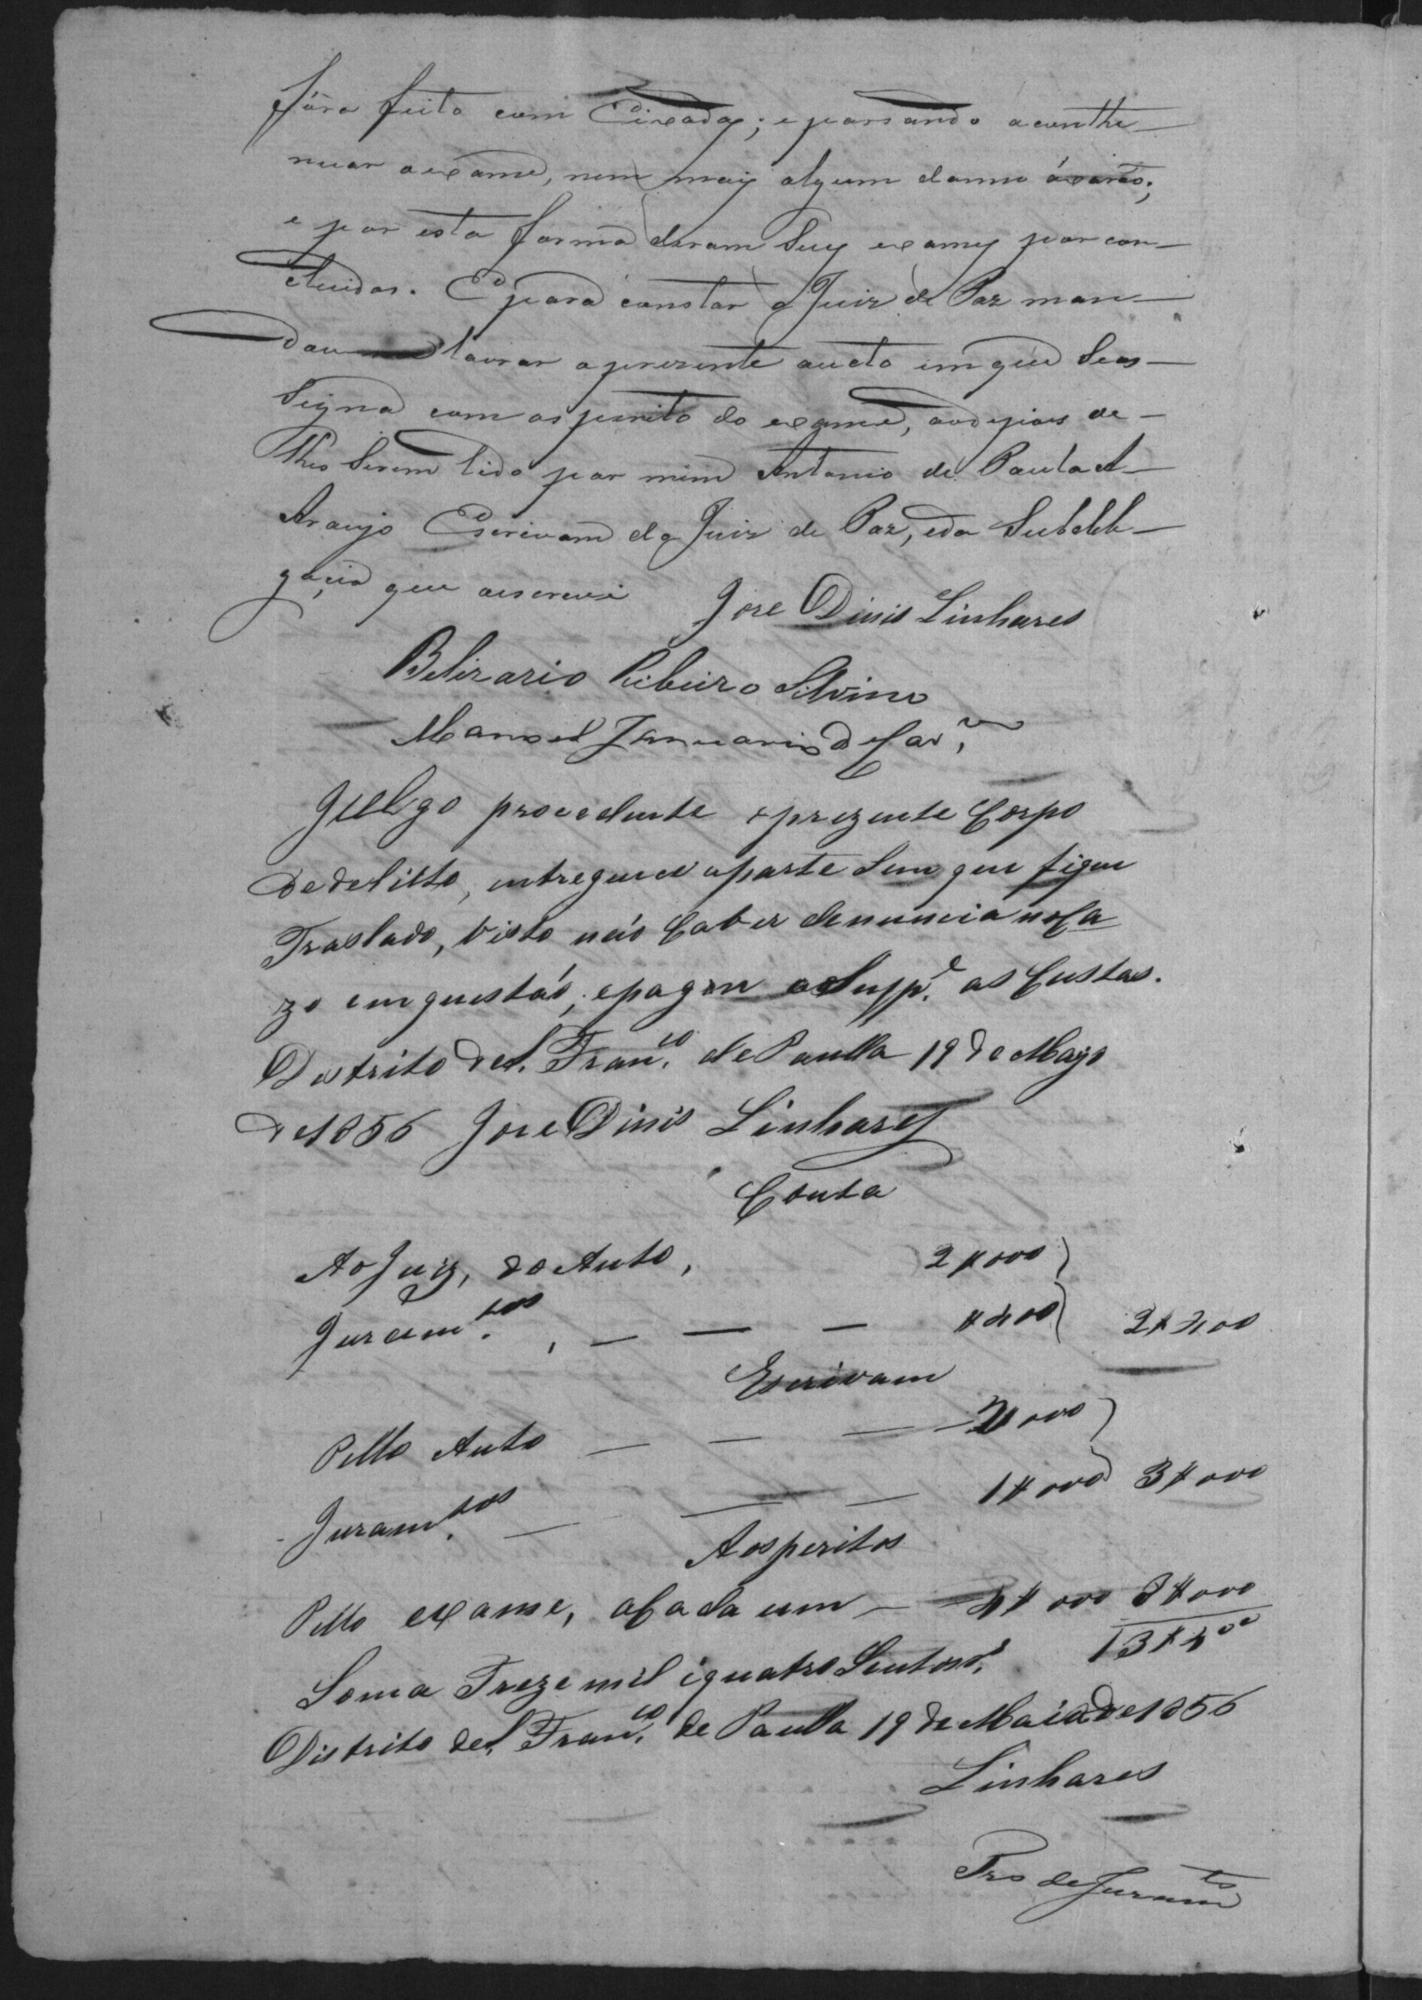 fôra feito com Enxadas; e passando a conthe-
nuar o exame, nem mais algum damno áxarão;
e por esta forma deram seus exames por con-
cluidos. E para constar o Juiz de Paz man-
dou lavrar o prezente aucto em que Seas-
signa com os perito do exame, aodepois de-
lhes serem lido por mim Antonio de Paula A
Araujo Escrivam do Juiz de Paz, eda Subdele-
gaçia que aescrevi Jose Dinis Linhares
Belizario Ribeiro Silvino
Manoel Januario de Car.
Julgo procedente o prezente Corpo
de delicto, entreguece aparte sem que fique
Traslado, visto não Caber denuncia no Ca
zo em questão, epague o Supp.e as Custas.
Distrito de S. Fran.co de Paulla 19 de Mayo
de 1856 Jose Dinis Linhares
Conta
Ao Juiz, do Auto, 2$000
Juram.tos, $400 2$400
Escrivam
Pello Auto 2$000
Juram.tos 1$000 3$000
Aos peritos
Pello exame, a Cada um 4$000 8$000
13$400
Soma Treze mil iquatro Sentos r.s
Distrito de S. Fran.co de Paulla 19 de Maio de 1856
Linhares
Pro de Juram.to